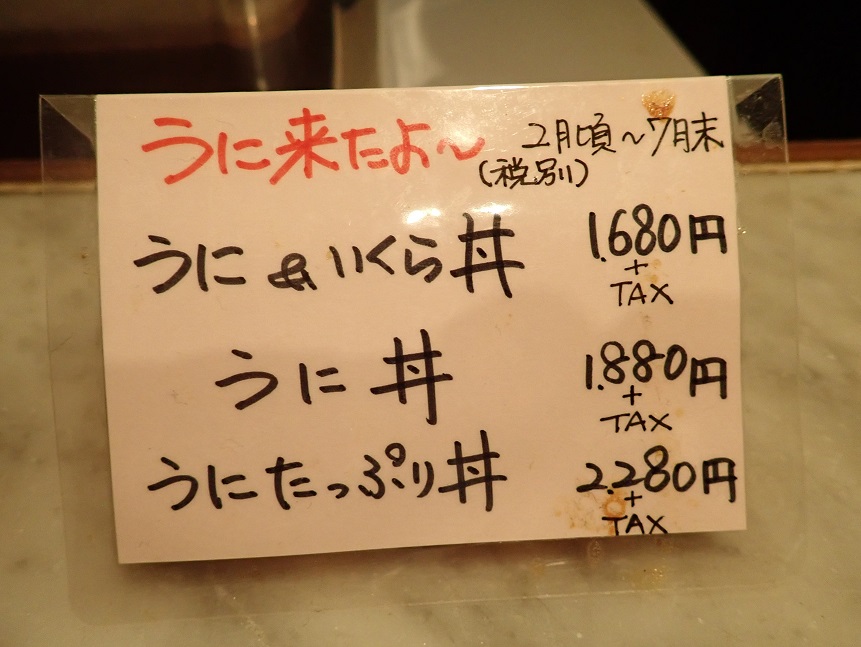 うに来たよ〜 2月頃〜7月末
(税別)
うに&いくら丼 1.680円
+
TAX
うに丼 1.880円
+
TAX
うにたっぷり丼 2.280円
+
TAX